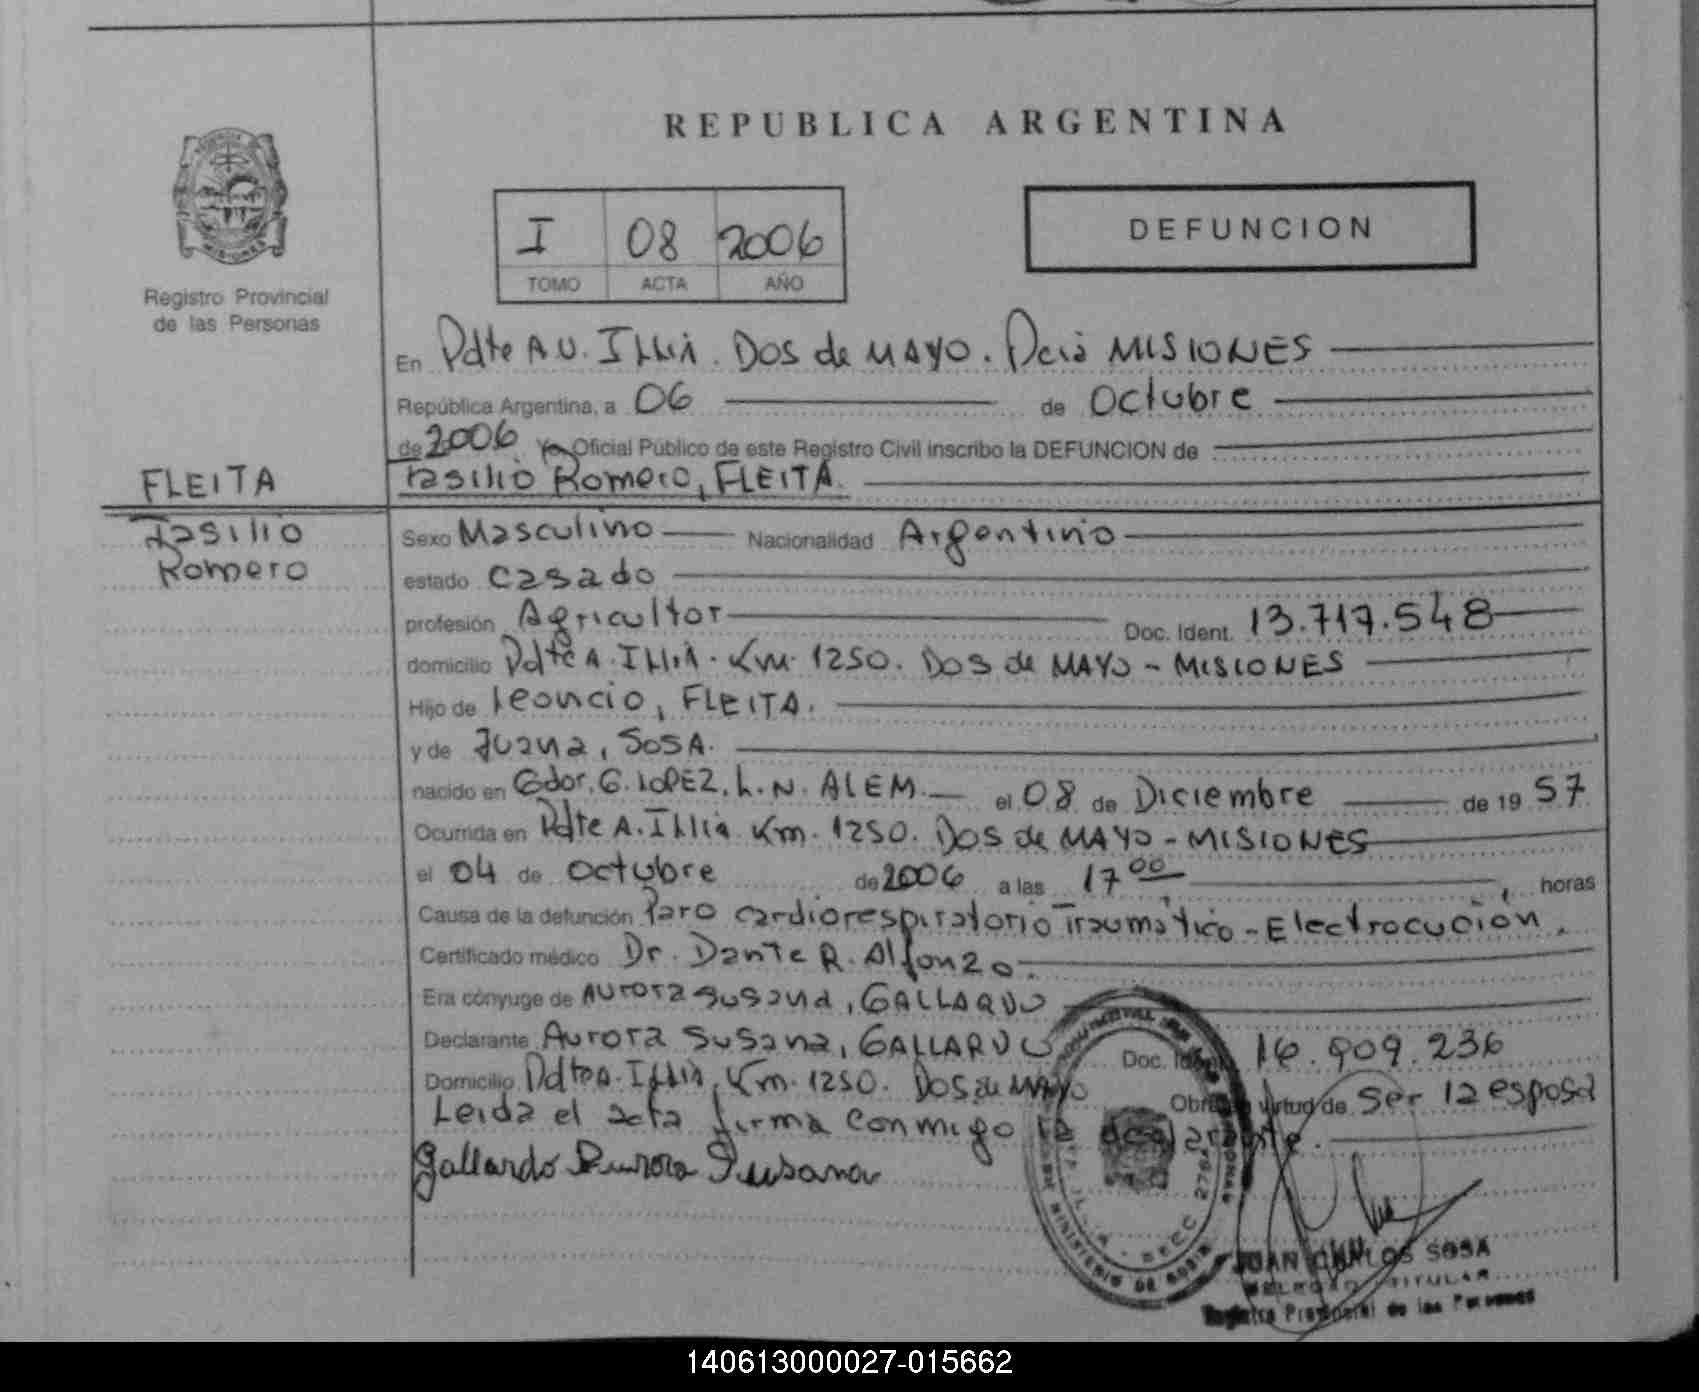 REPUBLICA ARGENTINA
I 08 2006
TOMO ACTA AÑO
DEFUNCION
MISIONES
Registro Provincial
de las Personas
En Pdte A.U. Illia. Dos de MAYO. Pcia MISIONES
República Argentina, a 06 de Octubre
de 2006 Yo, Oficial Público de este Registro Civil inscribo la DEFUNCION de
FLEITA
Tasilio Romero, FLEITA.
Tasilio
Romero
Sexo Masculino Nacionalidad Argentino
estado Casado
profesión Agricultor Doc. Ident. 13.717.548
domicilio Pdte A. Illia. Km. 1250. Dos de MAYO - MISIONES
Hijo de Leoncio, FLEITA.
y de Juana, SOSA.
nacido en Gdor. G. LOPEZ. L. N. ALEM. el 08 de Diciembre de 19 57
Ocurrida en Pdte A. Illia Km. 1250. Dos de MAYO - MISIONES
el 04 de Octubre de 2006 a las 17 00 horas
Causa de la defunción Paro cardiorespiratorio Traumático - Electrocución.
Certificado médico Dr. Dante R. Alfonzo.
Era cónyuge de Aurora Susana, GALLARDO
Declarante Aurora Susana, GALLARDO Doc. Ident. 16.909.236
Domicilio Pdte A. Illia, Km. 1250. Dos de MAYO Obra en virtud de Ser la esposa
Leida el acta firma conmigo la declarante.
Gallardo Aurora Susana
JUAN CARLOS SOSA
DELEGADO TITULAR
Registro Provincial de las Personas
140613000027-015662